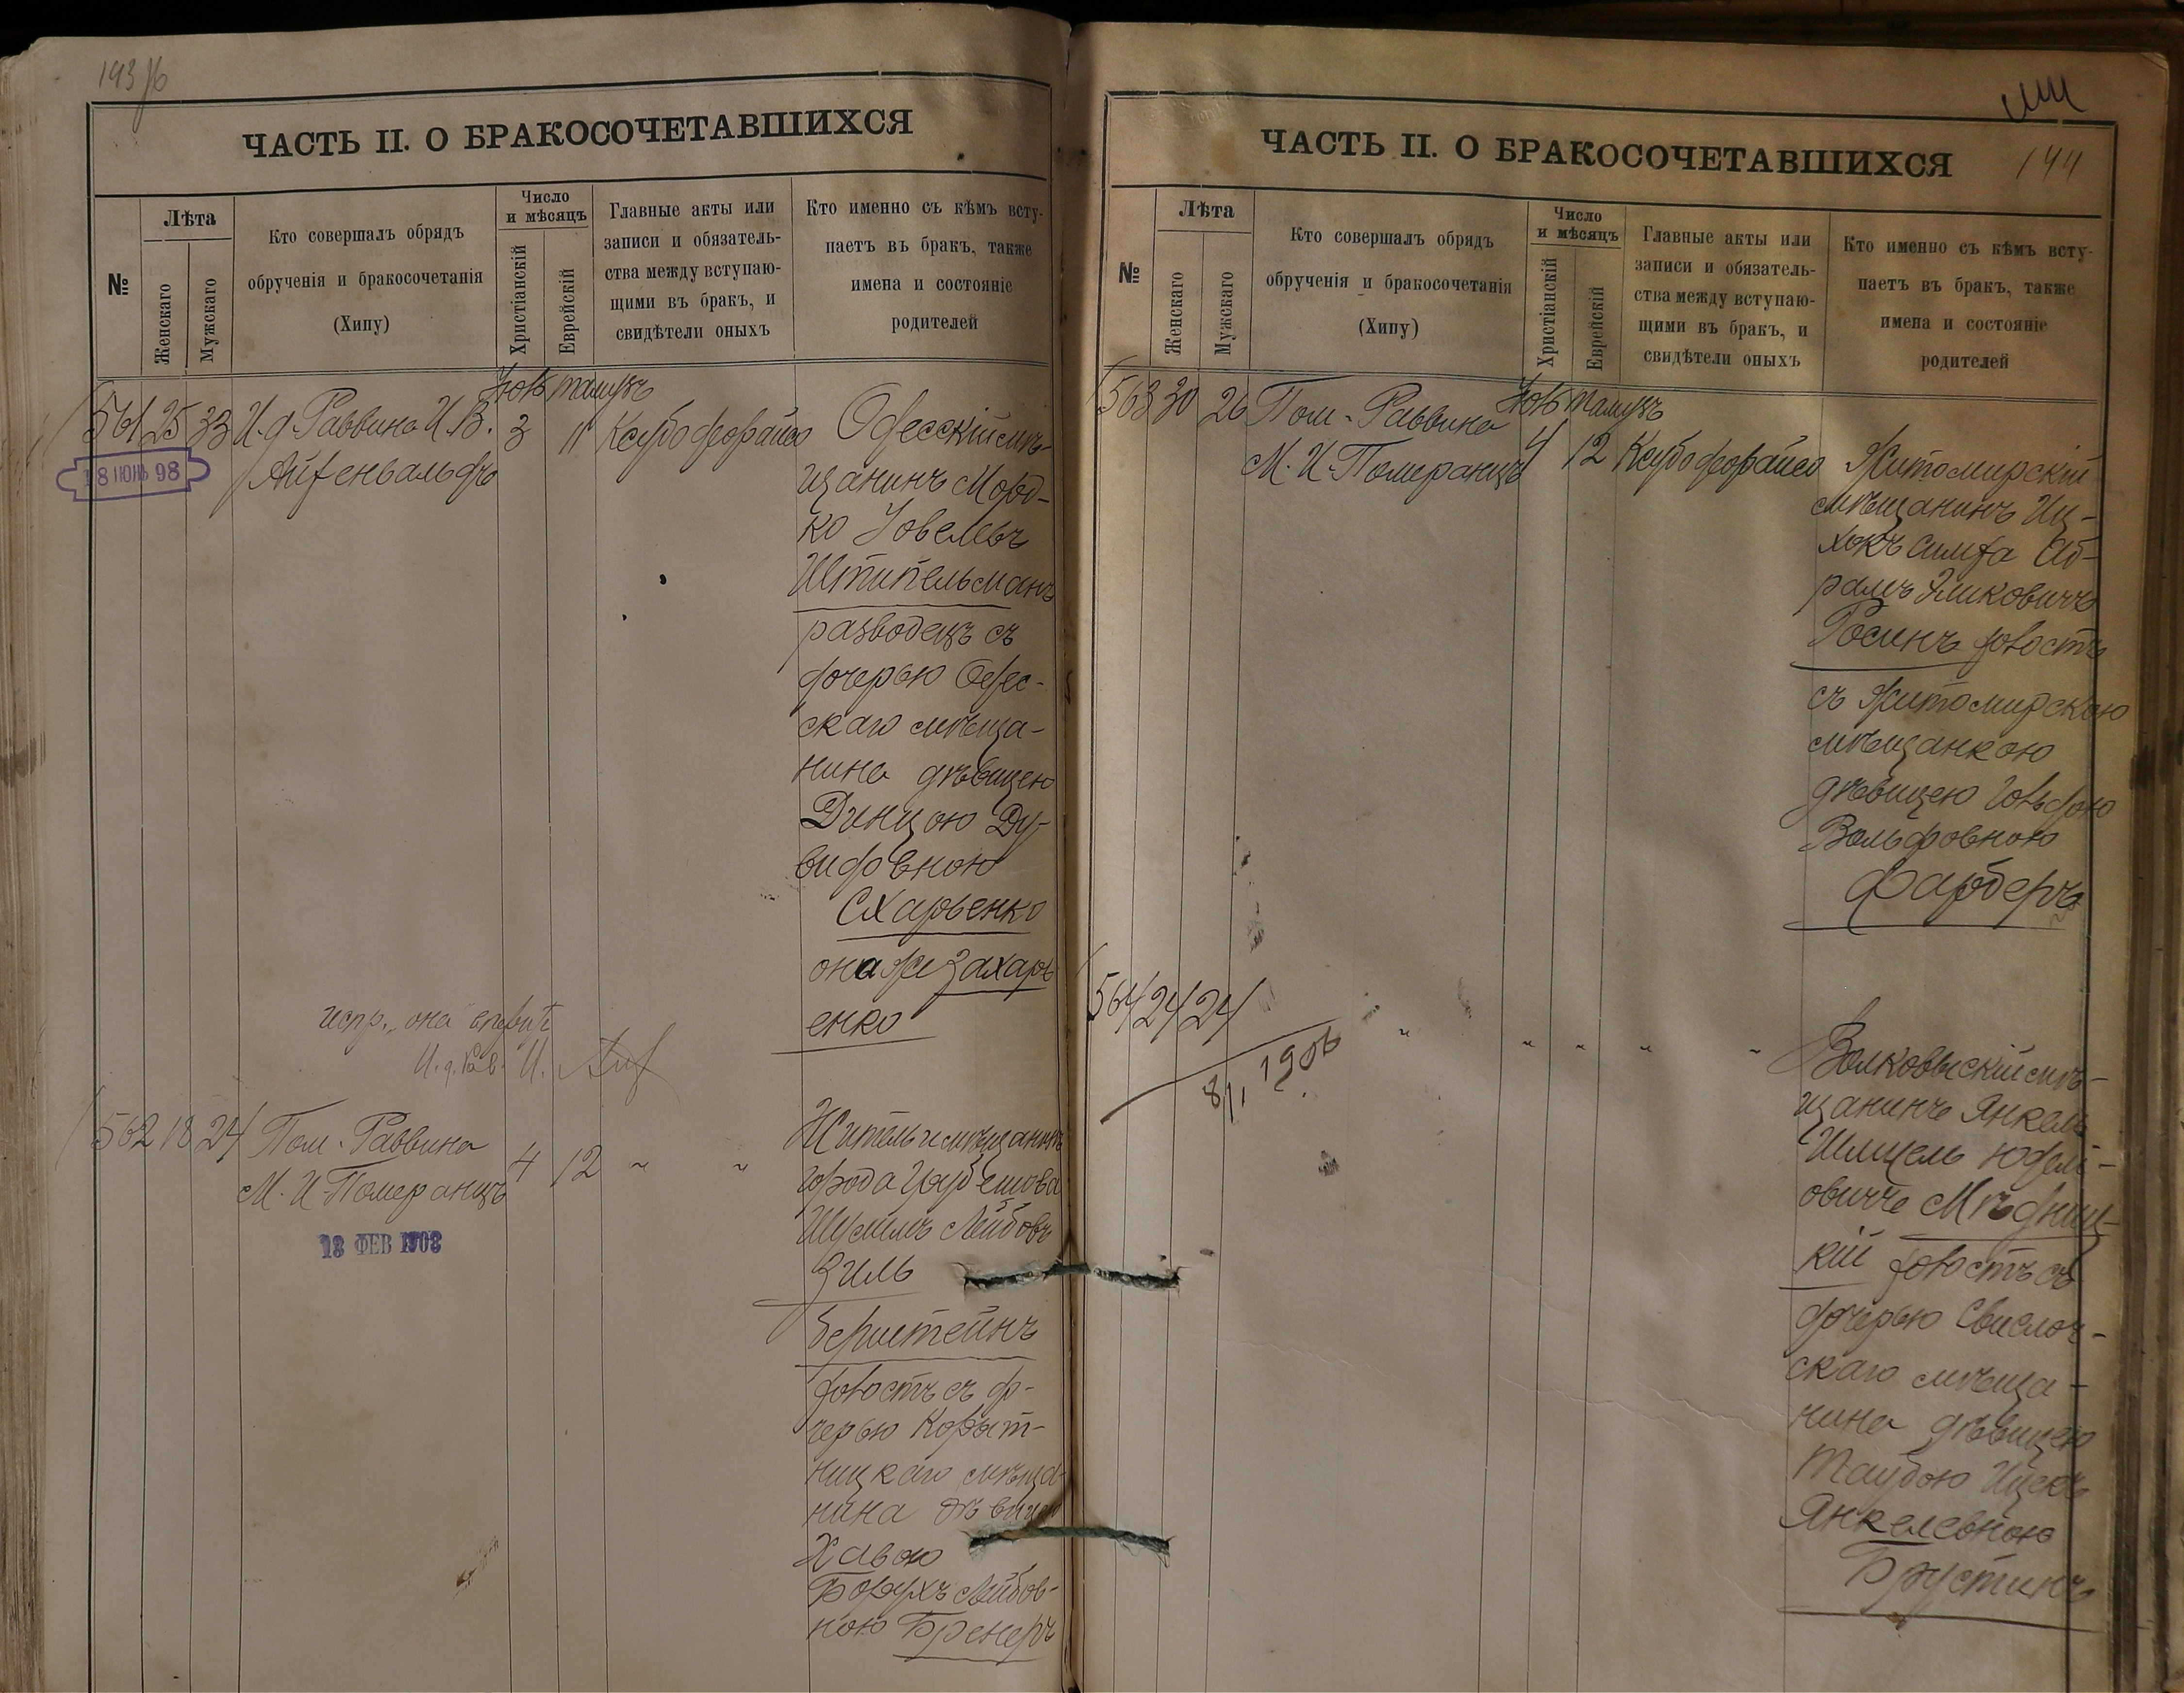 ЧАСТЬ II. О БРАКОСОЧЕТАВШИХСЯ
№
Лѣта
Женскаго
Мужскаго
Кто совершалъ обрядъ
обрученія и бракосочетанія
(Хипу)
Число
и мѣсяцъ
Христіанскій
Еврейскій
Главные акты или
записи и обязатель-
ства между вступаю-
щими въ бракъ, и
свидѣтели оныхъ
Кто именно съ кѣмъ всту-
паетъ въ бракъ, также
имена и состояніе
родителей
561 25 33 И. д. Раввина И. В.
Айзенвальдъ
Тамузъ
3 11
18 ІЮНЬ 98
Одесскій мѣ-
щанинъ Морд-
ко Іовелевъ
Штительманъ
разводецъ съ
дочерью Одес-
скаго мѣща-
нина дѣвицею
Динцою Ду-
видовною
Схарьенко
она же Захарь
енко
испр. „она"
И. д. Рав. И.
562 18 24 Пом. Раввина
М. И. Померанцъ
4 12 " "
18 ФЕВ 1903
Житель и мѣщанинъ
города
Лейбовъ
Зиль
Берштейнъ
холостъ съ до-
черью Корыт-
ницкаго мѣща-
нина дѣвицею
Хавою
Борухъ Лейбов-
ною Бренеръ
ЧАСТЬ II. О БРАКОСОЧЕТАВШИХСЯ
144
№
Лѣта
Женскаго
Мужскаго
Кто совершалъ обрядъ
обрученія и бракосочетанія
(Хипу)
Число
и мѣсяцъ
Христіанскій
Еврейскій
Главные акты или
записи и обязатель-
ства между вступаю-
щими въ бракъ, и
свидѣтели оныхъ
Кто именно съ кѣмъ всту-
паетъ въ бракъ, также
имена и состояніе
родителей
563 30 26 Пом. Раввина
М. И. Померанцъ
Тамузъ
4 12
Житомирскій
мѣщанинъ Иц-
хокъ Симха Аб-
рамъ Эликовичъ
Росинъ холостъ
съ Житомирскою
мѣщанкою
дѣвицею Гольдою
Вольфовною
Фарберъ
564 24 24 " " " " "
8/I 1906
Волковыскій мѣ-
щанинъ Янкель
Шмуель Юдел-
овичъ Мѣдниц-
кій холостъ съ
дочерью Свислоч-
скаго мѣща-
нина дѣвицею
Таубою Ицекъ
Янкелевною
Брустинъ